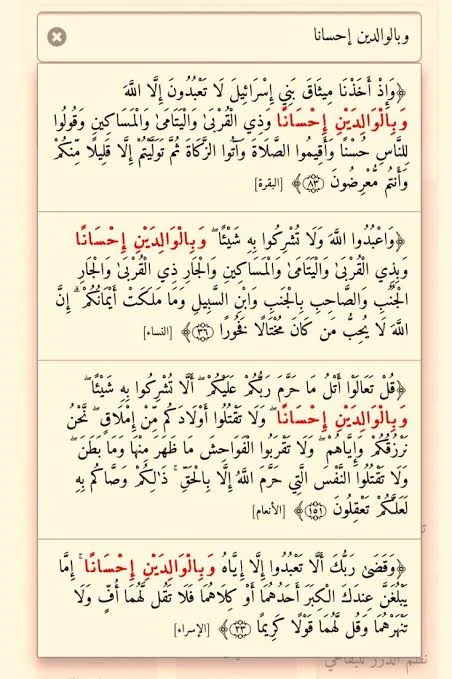 وبالوالدين إحسانا
﴿وَإِذْ أَخَذْنَا مِيثَاقَ بَنِي إِسْرَائِيلَ لَا تَعْبُدُونَ إِلَّا اللَّهَ
وَبِالْوَالِدَيْنِ إِحْسَانًا وَذِي الْقُرْبَىٰ وَالْيَتَامَىٰ وَالْمَسَاكِينِ وَقُولُوا
لِلنَّاسِ حُسْنًا وَأَقِيمُوا الصَّلَاةَ وَآتُوا الزَّكَاةَ ثُمَّ تَوَلَّيْتُمْ إِلَّا قَلِيلًا مِّنكُمْ
وَأَنتُم مُّعْرِضُونَ ۝٨٣﴾ [البقرة]
﴿وَاعْبُدُوا اللَّهَ وَلَا تُشْرِكُوا بِهِ شَيْئًا ۖ وَبِالْوَالِدَيْنِ إِحْسَانًا
وَبِذِي الْقُرْبَىٰ وَالْيَتَامَىٰ وَالْمَسَاكِينِ وَالْجَارِ ذِي الْقُرْبَىٰ وَالْجَارِ
الْجُنُبِ وَالصَّاحِبِ بِالْجَنبِ وَابْنِ السَّبِيلِ وَمَا مَلَكَتْ أَيْمَانُكُمْ ۗ إِنَّ
اللَّهَ لَا يُحِبُّ مَن كَانَ مُخْتَالًا فَخُورًا ۝٣٦﴾ [النساء]
﴿قُلْ تَعَالَوْا أَتْلُ مَا حَرَّمَ رَبُّكُمْ عَلَيْكُمْ ۖ أَلَّا تُشْرِكُوا بِهِ شَيْئًا ۖ
وَبِالْوَالِدَيْنِ إِحْسَانًا ۖ وَلَا تَقْتُلُوا أَوْلَادَكُم مِّنْ إِمْلَاقٍ ۖ نَّحْنُ
نَرْزُقُكُمْ وَإِيَّاهُمْ ۖ وَلَا تَقْرَبُوا الْفَوَاحِشَ مَا ظَهَرَ مِنْهَا وَمَا بَطَنَ ۖ
وَلَا تَقْتُلُوا النَّفْسَ الَّتِي حَرَّمَ اللَّهُ إِلَّا بِالْحَقِّ ۚ ذَٰلِكُمْ وَصَّاكُم بِهِ
لَعَلَّكُمْ تَعْقِلُونَ ۝١٥١﴾ [الأنعام]
﴿وَقَضَىٰ رَبُّكَ أَلَّا تَعْبُدُوا إِلَّا إِيَّاهُ وَبِالْوَالِدَيْنِ إِحْسَانًا ۚ إِمَّا
يَبْلُغَنَّ عِندَكَ الْكِبَرَ أَحَدُهُمَا أَوْ كِلَاهُمَا فَلَا تَقُل لَّهُمَا أُفٍّ وَلَا
تَنْهَرْهُمَا وَقُل لَّهُمَا قَوْلًا كَرِيمًا ۝٢٣﴾ [الإسراء]
نظم الدرر للبقاعي